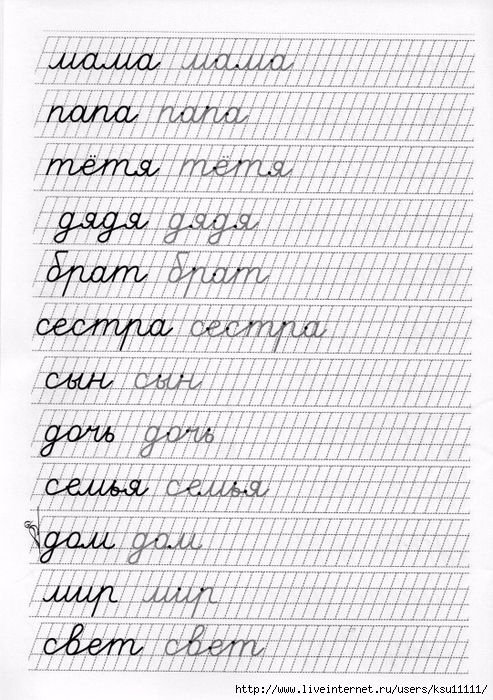 мама мама
папа папа
тётя тётя
дядя дядя
брат брат
сестра сестра
сын сын
дочь дочь
семья семья
дом дом
мир мир
свет свет
http://www.liveinternet.ru/users/ksu11111/